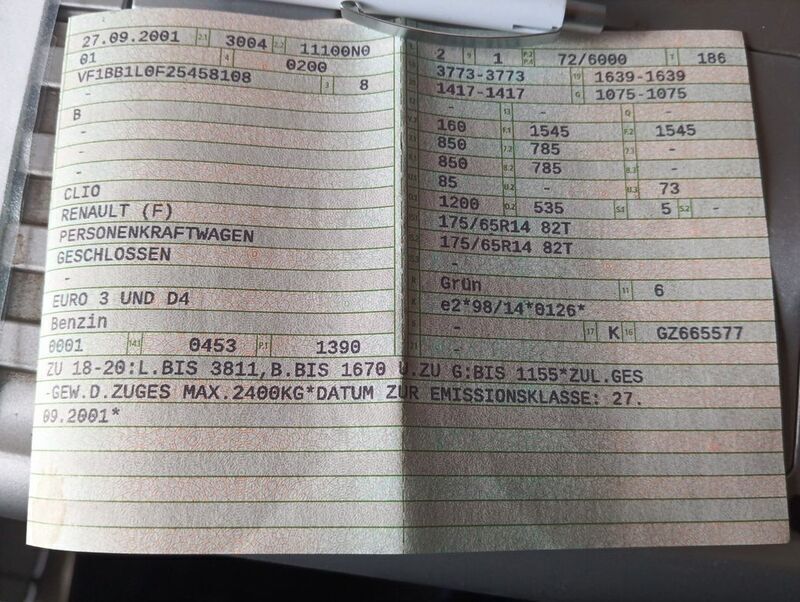 27.09.2001 2.1 3004 2.2 11100N0
01 4 0200
VF1BB1L0F25458108 3 8
-
B
-
-
-
CLIO
RENAULT (F)
PERSONENKRAFTWAGEN
GESCHLOSSEN
-
EURO 3 UND D4
Benzin
0001 14.1 0453 P.1 1390
L 2 9 1 P.2 P.4 72/6000 T 186
18 3773-3773 19 1639-1639
20 1417-1417 G 1075-1075
12 - 13 - Q -
V.7 160 F.1 1545 F.2 1545
7.1 850 7.2 785 7.3 -
8.1 850 8.2 785 8.3 -
U.1 85 U.2 - U.3 73
O.1 1200 O.2 535 S.1 5 S.2 -
15.1 175/65R14 82T
15.2 175/65R14 82T
15.3 -
R Grün 11 6
K e2*98/14*0126*
6 - 17 K 16 GZ665577
21
ZU 18-20:L.BIS 3811,B.BIS 1670 U.ZU G:BIS 1155*ZUL.GES
-GEW.D.ZUGES MAX.2400KG*DATUM ZUR EMISSIONSKLASSE: 27.
09.2001*